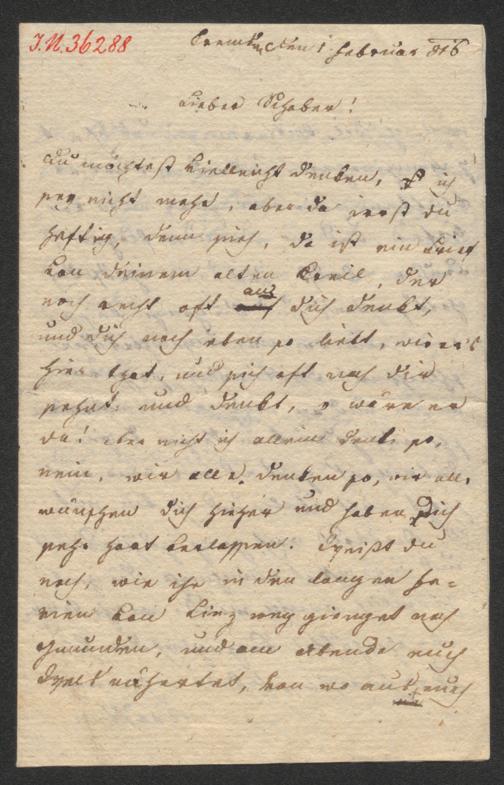 I.N. 36288
Kremsm. den 1 Februar 816
Lieber Schober!
Du möchtest vielleicht denken, ich
sey nicht mehr, aber da irrst du
heftig, denn sieh, da ist ein Brief
von deinem alten Kreil, der
noch recht oft an dich denkt,
und dich noch eben so liebt, wie er's
hier that, und sich oft nach dir
sehnt und denkt, o wäre er
da! aber nicht ich allein denke so,
nein, wir alle denken so, wir alle
wünschen dich hieher und haben dich
sehr hart verlassen. Weißt du
noch, wie ihr in den langen Fe-
rien von Linz weg gienget nach
Gmunden, und am Abende euch
nähertet, von wo aus euch